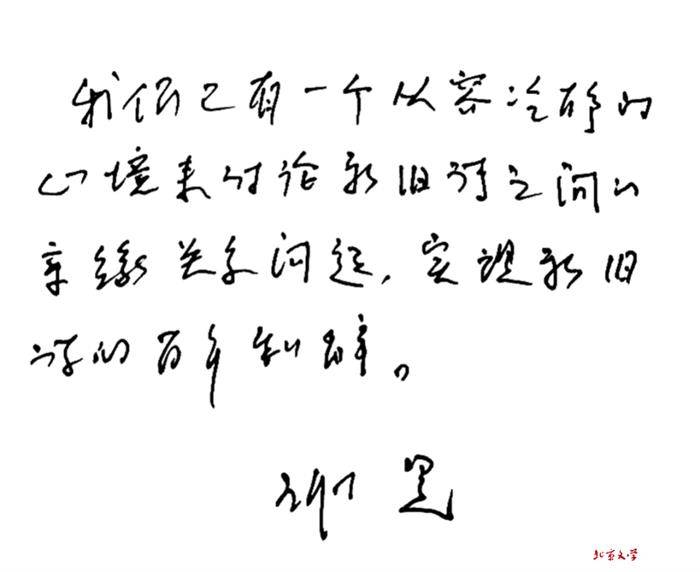 我们已有一个从容冷静的
心境来讨论新旧诗之间的
亲缘关系问题，实现新旧
诗的百年和解。
谢冕
北京文学